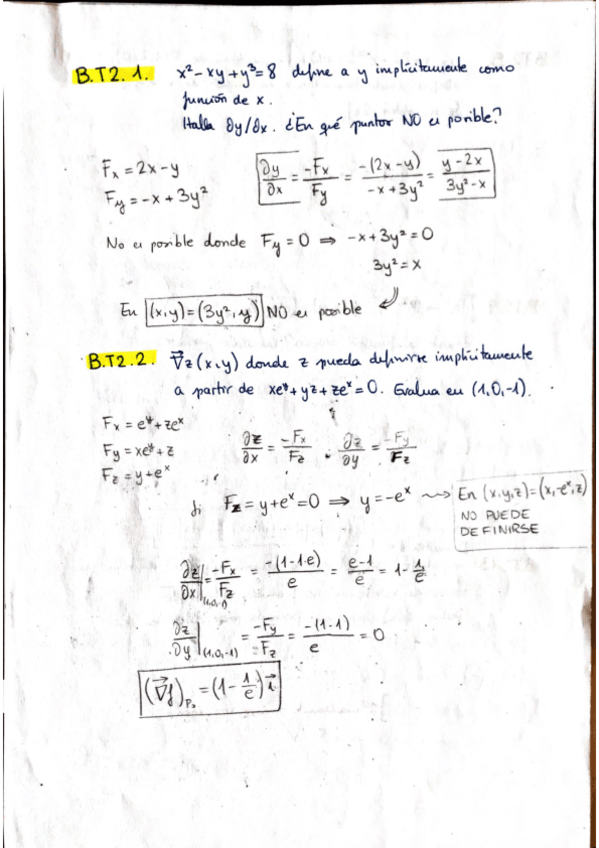 B.T2.1. x² - xy + y³ = 8 define a y implícitamente como
función de x.
Halla ∂y/∂x. ¿En qué puntos NO es posible?
Fx = 2x - y
Fy = -x + 3y²
∂y/∂x = -Fx/Fy = -(2x-y)/(-x+3y²) = (y-2x)/(3y²-x)
No es posible donde Fy = 0 ⇒ -x + 3y² = 0
3y² = x
En (x,y) = (3y², y) NO es posible
B.T2.2. ∇z(x,y) donde z pueda definirse implícitamente
a partir de xe^y + yz + ze^x = 0. Evalua en (1,0,-1).
Fx = e^y + ze^x
Fy = xe^y + z
Fz = y + e^x
∂z/∂x = -Fx/Fz . ∂z/∂y = -Fy/Fz
Si Fz = y + e^x = 0 ⇒ y = -e^x ⇝ En (x,y,z) = (x,-e^x,z)
NO PUEDE
DEFINIRSE
∂z/∂x|(1,0,-1) = -Fx/Fz = -(1-1·e)/e = (e-1)/e = 1 - 1/e
∂z/∂y|(1,0,-1) = -Fy/Fz = -(1-1)/e = 0
(∇f)P₀ = (1 - 1/e) i